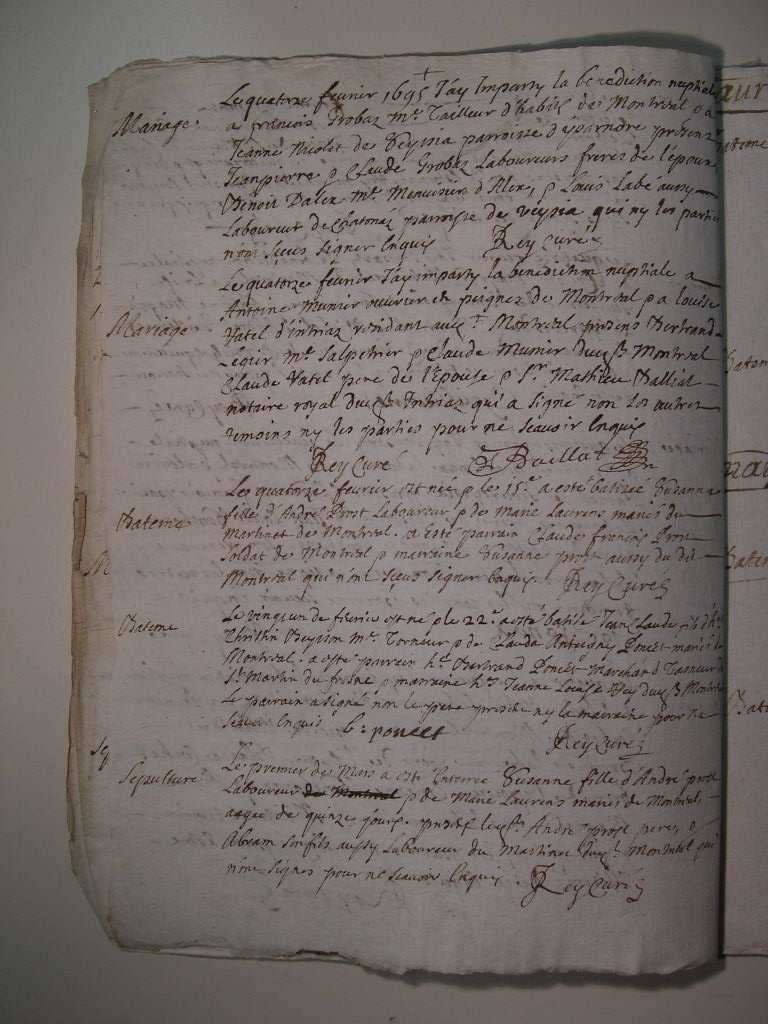 Mariage
Le quatorze feuvrier 1695 J'ay Imparty la benediction nuptiale
a francois Grobaz mre Tailleur d'habitz de Montreal & a
Jeanne Nicolet de Veysia parroisse presens
Jeanpierre & Claude Grobaz Laboureurs freres de l'epoux
Benoit Dalex mre Menuisier d'Alex, & Louis Labé aussy
Laboureur de Chatonaz parroisse de veysia qui ny les parties
n'ont sceus signer Enquis Rey Curé
Le quatorze feuvrier J'ay imparty la benediction nuptiale a
Mariage
Antoine Munier ouvrier en peignes de Montreal & a louise
Vatel d'intriaz residant audt Montreal presens Bertrand
mre Salpetrier & Claude Munier dudt Montreal
Claude Vatel pere de l'Epouse & Sr Mathieu Balliat
notaire royal dudt Intriaz qui a signé non les autres
temoins n'y les parties pour ne scavoir Enquis
Rey Curé Baillat
Les quatorze feuvrier est née & le 15e a esté batisée Suzanne
Bateme
fille d'André Prost Laboureur & de marie Laurens mariés du
Martinet de Montreal. a esté parrain Claude francois Prost
Soldat de Montreal & marraine Suzanne prost aussy du dit
Montreal qui n'ont sceus signer Enquis Rey Curé
Bateme
Le vingt un de feuvrier est né & le 22e a esté batisé Jean Claude fils d'h.
Beysson mre Torneur & de Clauda Antoigny Poncet mariés de
Montreal. a esté parrain h. Bertrand Poncet Marchand Tanneur a
St Martin du fresne & marraine h. Jeanne Louise Rey dudt Montreal
Le parrain a signé non le pere present ny la marraine pour ne
scavoir Enquis b: poncet
Rey Curé
Sepulture
Le premier de Mars a esté Enterrée Suzanne fille d'André prost
Laboureur de Montreal & de Marie Laurens mariés de Montreal,
aagée de quinze jours. presens André prost pere, &
Abram son fils aussy Laboureur du Martinet dudt Montreal qui
n'ont signés pour ne scavoir Enquis. Rey Curé